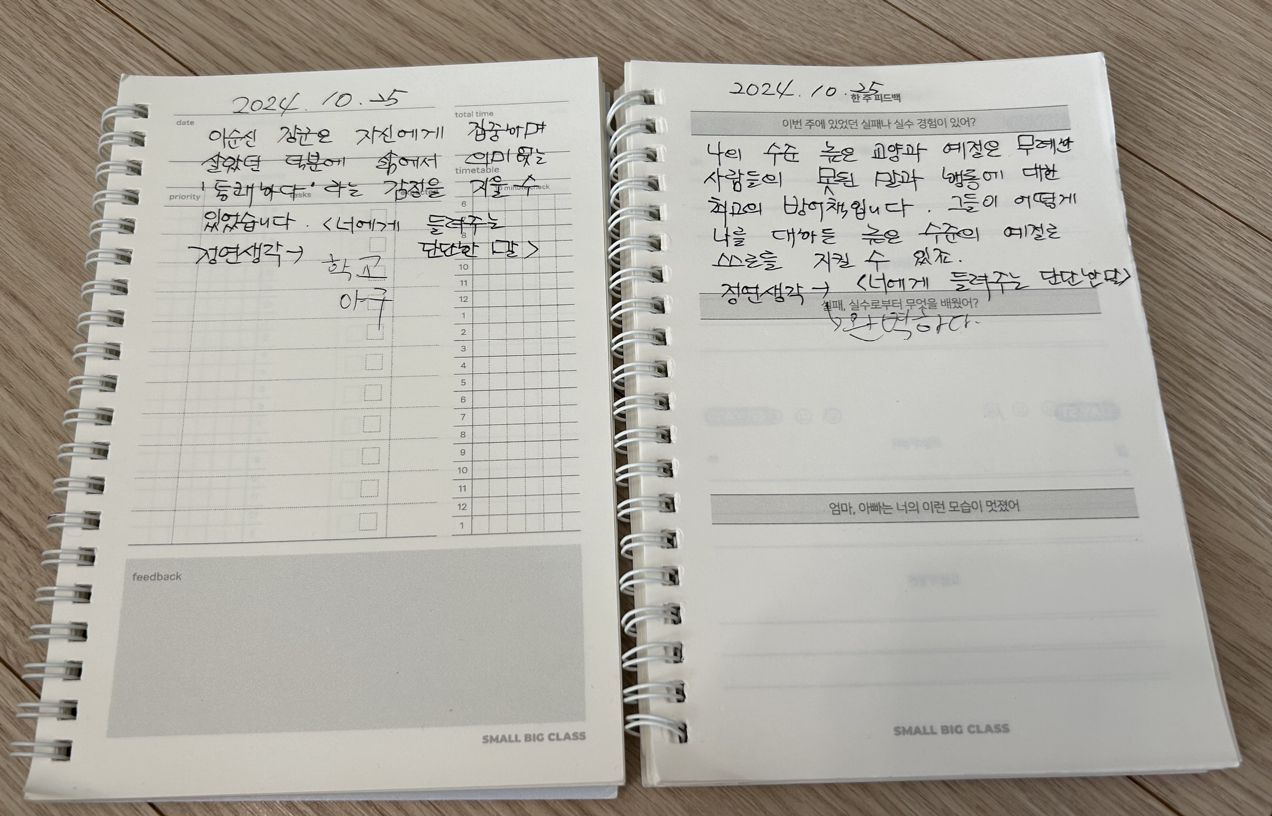 2024. 10. 25
date
total time
이순신 장군은 자신에게 집중하며
살았던 덕분에 삶에서 의미 없는
timetable
'통쾌하다' 라는 감정을 지울 수
priority
tasks
check
있었습니다. <너에게 들려주는
정연생각→ 단단한 말>
학교
야구
6
8
10
11
12
1
2
3
4
5
6
7
8
9
10
11
12
1
feedback
SMALL BIG CLASS
2024. 10. 25
한 주 피드백
이번 주에 있었던 실패나 실수 경험이 있어?
나의 수준 높은 교양과 예절은 무례한
사람들의 못된 말과 행동에 대한
최고의 방어책입니다. 그들이 어떻게
나를 대하든 높은 수준의 예절로
스스로를 지킬 수 있죠.
정연생각→ <너에게 들려주는 단단한 말>
실패, 실수로부터 무엇을 배웠어?
완벽하다.
엄마, 아빠는 너의 이런 모습이 멋졌어
SMALL BIG CLASS